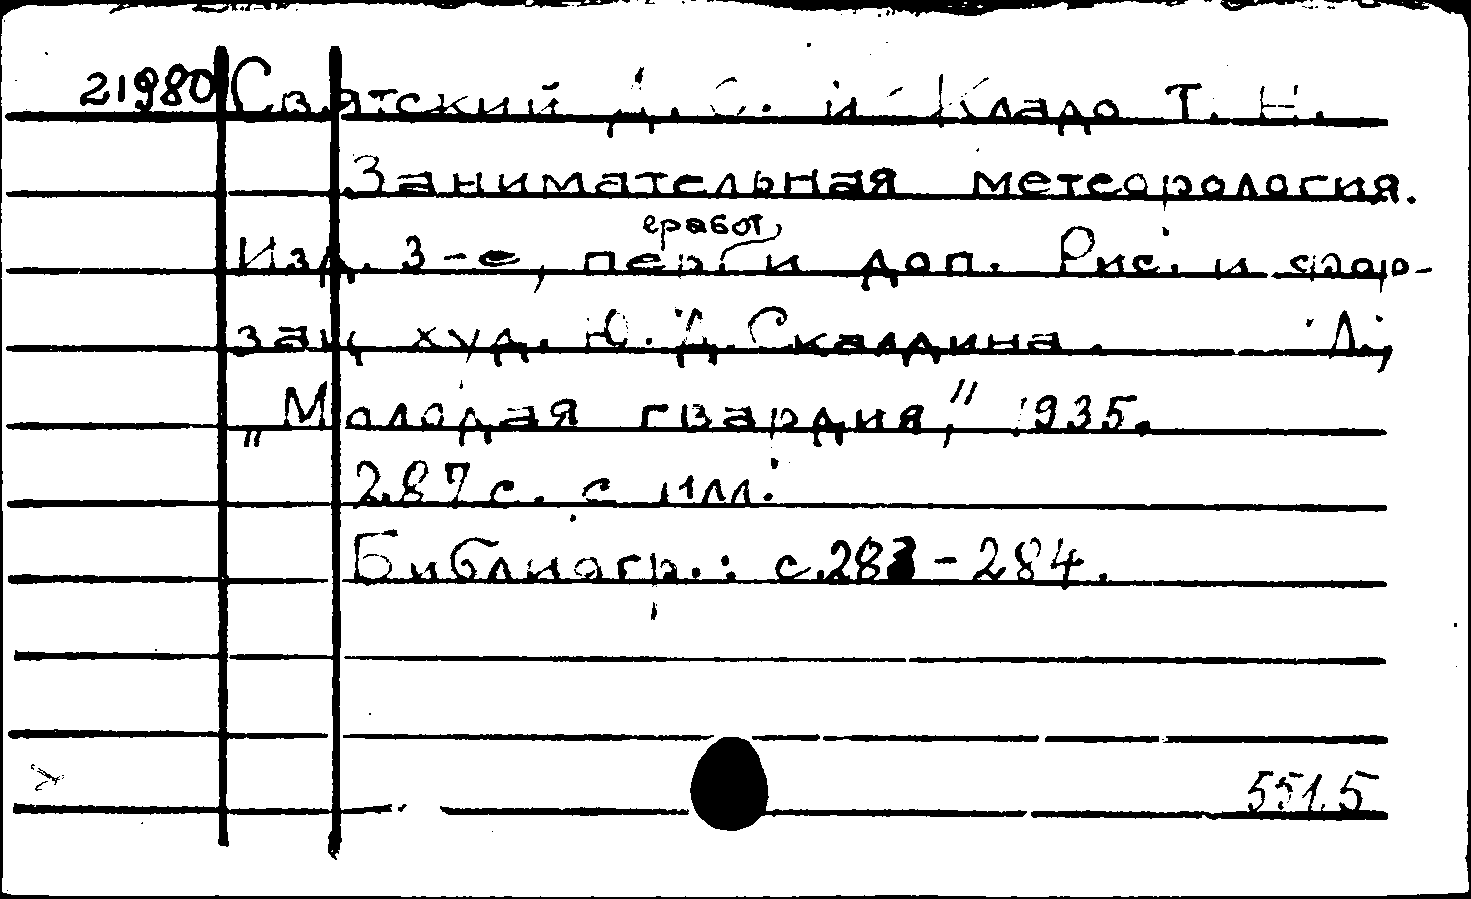 21980 Святский Д. О. и Кладо Т. Н.
Занимательная метеорология.
Изд. 3-е, перераб. и доп. Рис. и фор-
зац худ. Ю. Д. Скалдина. Л.,
„Молодая гвардия," 1935.
287 с. с илл.
Библиогр.: с. 283-284.
551.5